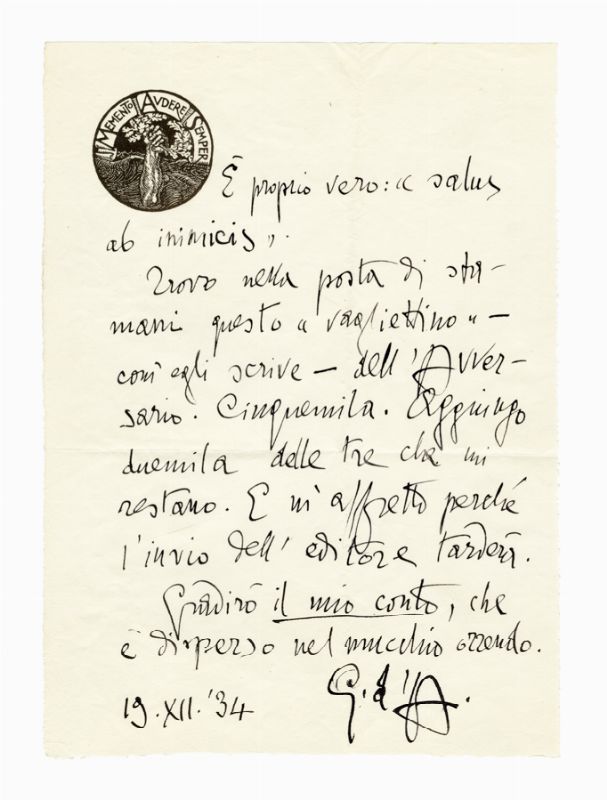 MEMENTO AVDERE SEMPER
È proprio vero: « salus
ab inimicis ».
Trovo nella posta di sta-
mani questo « vagliettino » –
com' egli scrive – dell'Avver-
sario. Cinquemila. Aggiungo
duemila delle tre che mi
restano. E m' affretto perché
l'invio dell' editore tarderà.
Gradirò il mio conto, che
è disperso nel mucchio orrendo.
19.XII.'34 G. d'A.